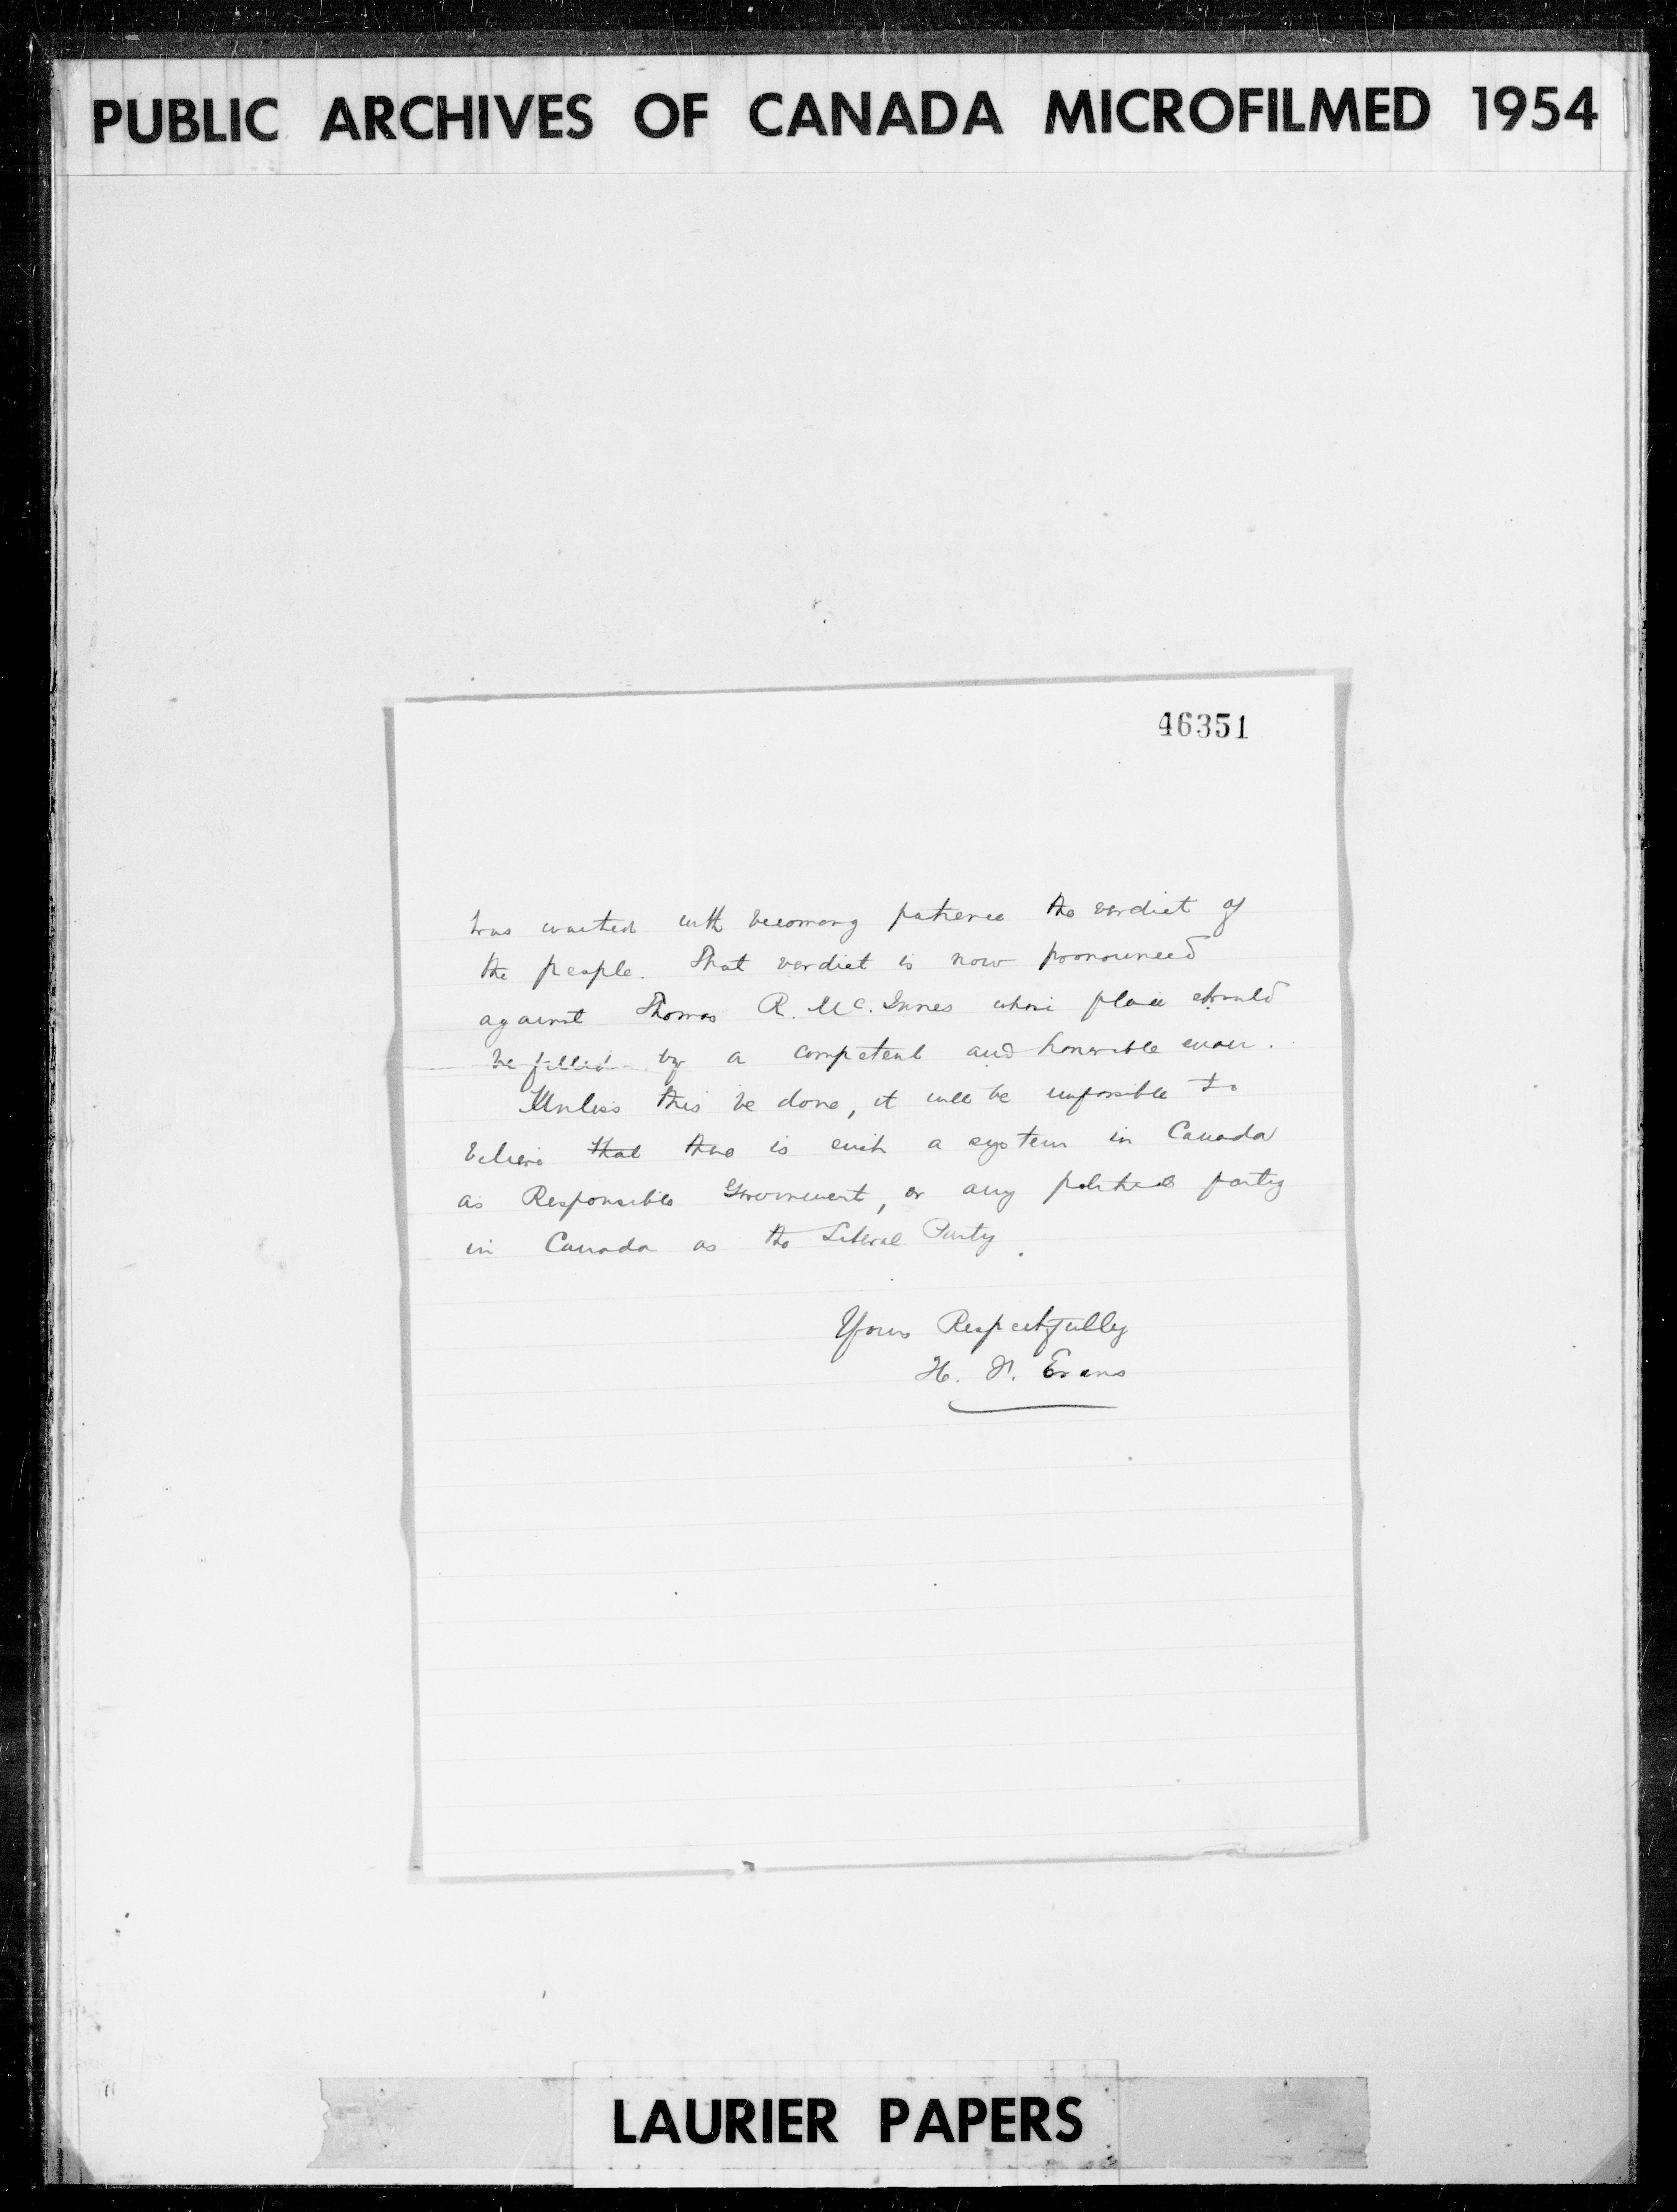 PUBLIC ARCHIVES OF CANADA MICROFILMED 1954
46351
has waited with becoming patience the verdict of
the people. That verdict is now pronounced
against Thomas R. Mc. Innes whose place should
be filled by a competent and honorable man.
Unless this be done, it will be impossible to
believe that there is such a system in Canada
as Responsible Government, or any political party
in Canada as the Liberal Party.
Yours Respectfully
H. F. Evans
LAURIER PAPERS